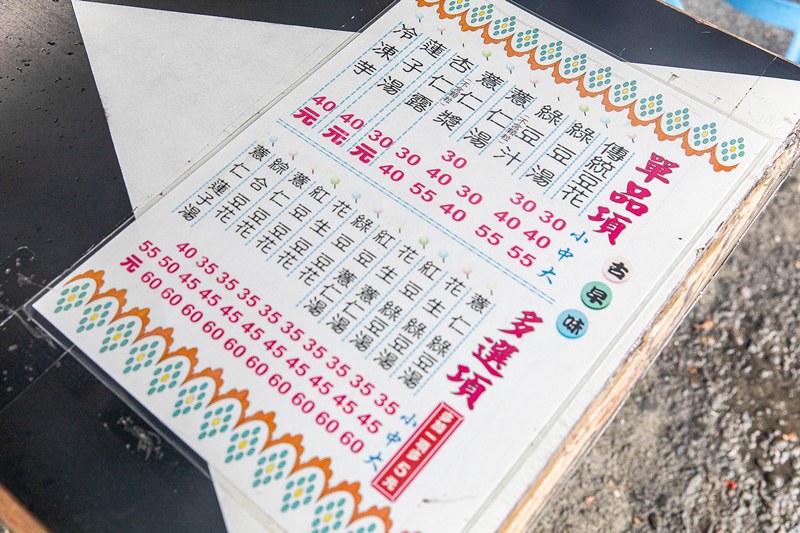 單品項
古早味
小 中 大
傳統豆花
綠豆花
綠豆湯
綠豆汁
薏仁湯
薏仁漿
杏仁露
蓮子湯
冷凍芋
30 30 30
40 40 30 30 30 40 40
55 55 40 55 40
元 元 元
多選項
小 中 大
薏仁綠豆湯
花生綠豆湯
紅豆綠豆湯
花生薏仁湯
紅豆薏仁湯
花生豆花
紅豆豆花
薏仁豆花
綜合豆花
薏仁蓮子湯
40 35 35 35 35 35 35 35 35 35
55 50 45 45 45 45 45 45 45 45 45
元 60 60 60 60 60 60 60 60 60 60
一份5元